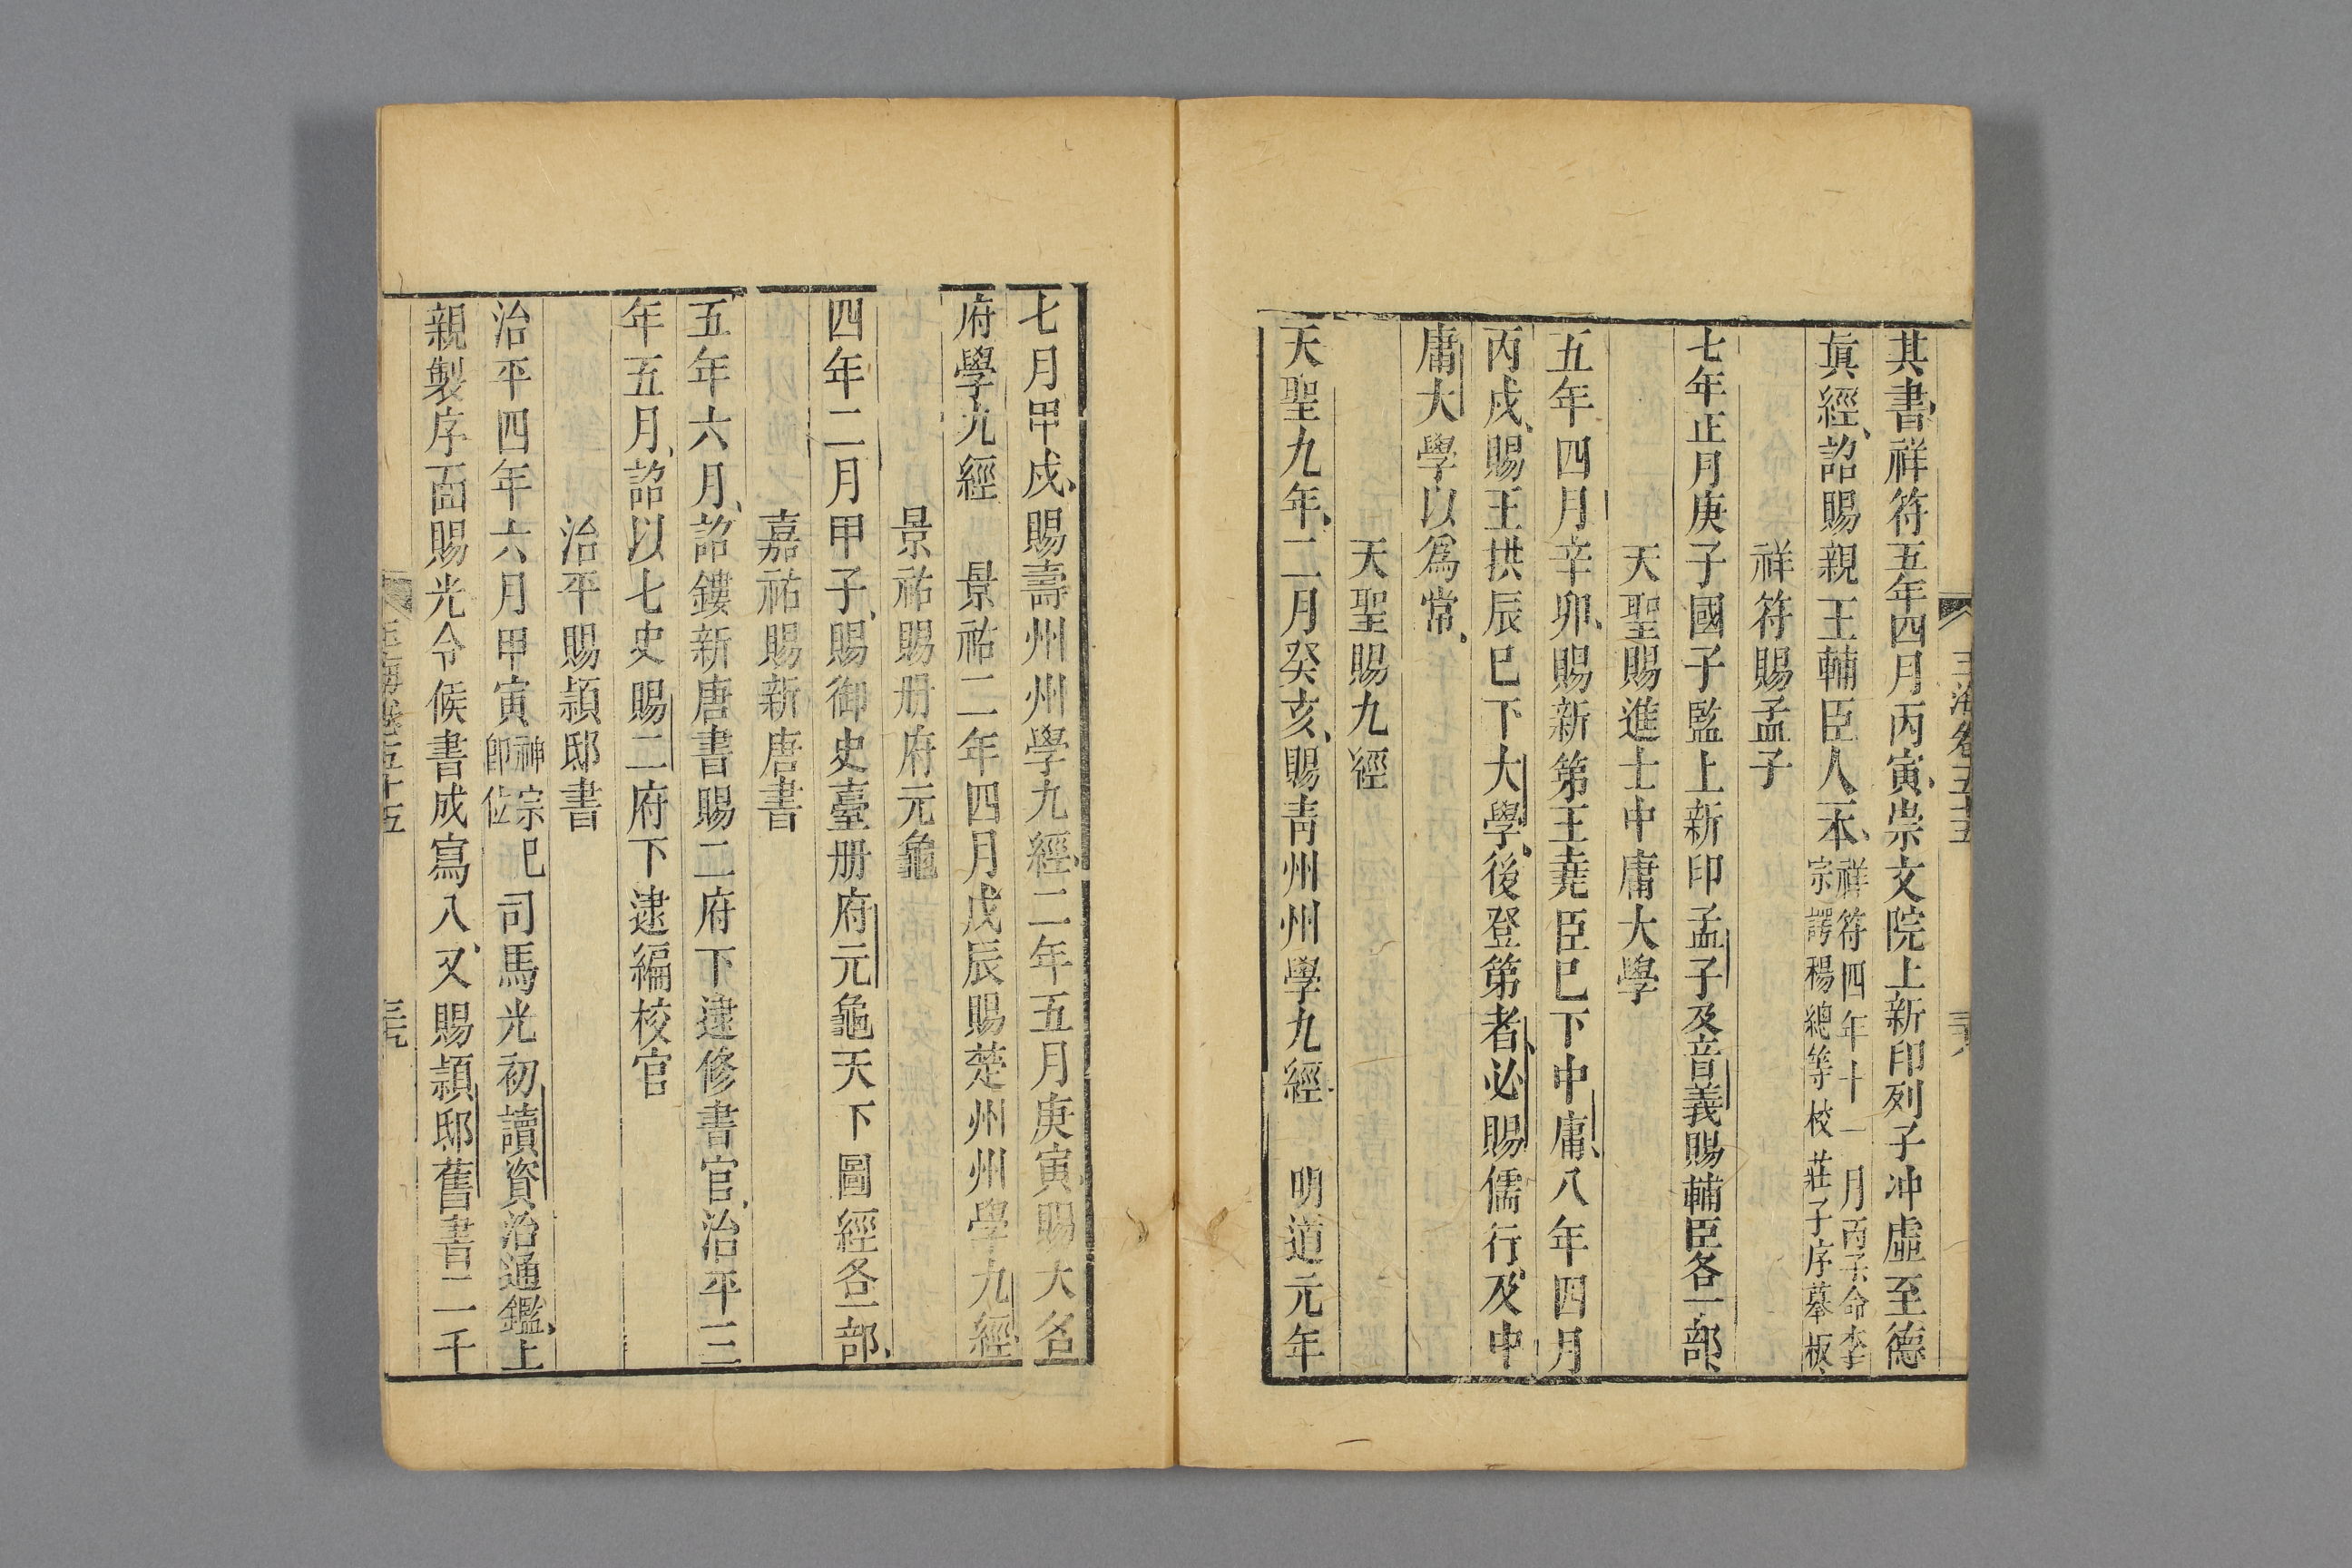 玉海卷五十五 三十八
其書祥符五年四月丙寅崇文院上新印列子冲虛至德
眞經詔賜親王輔臣人一本祥符四年十一月丙子命李
宗諤楊總等校莊子序摹板
祥符賜孟子
七年正月庚子國子監上新印孟子及音義賜輔臣各一部
天聖賜進士中庸大學
五年四月辛卯賜新第王堯臣巳下中庸八年四月
丙戌賜王拱辰巳下大學後登第者必賜儒行及中
庸大學以爲常
天聖賜九經
天聖九年二月癸亥賜青州州學九經 明道元年
七月甲戌賜壽州州學九經二年五月庚寅賜大名
府學九經 景祐二年四月戊辰賜楚州州學九經
景祐賜册府元龜
四年二月甲子賜御史臺册府元龜天下圖經各一部
嘉祐賜新唐書
五年六月詔鏤新唐書賜二府下逮修書官治平三
年五月詔以七史賜二府下逮編校官
治平賜頴邸書
治平四年六月甲寅神宗巳
卽位司馬光初讀資治通鑑上
親製序面賜光令候書成寫入又賜頴邸舊書二千
玉海卷五十五 三十九